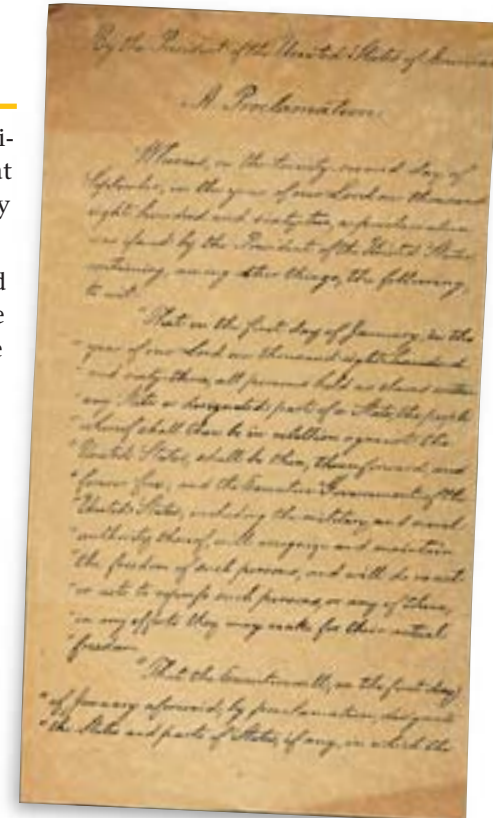 i-
t
y
d
e
e
By the President of the United States of America:
A Proclamation.
Whereas, on the twenty-second day of
September, in the year of our Lord one thousand
eight hundred and sixty two, a proclamation
was issued by the President of the United States,
containing, among other things, the following,
to wit:
"That on the first day of January, in the
"year of our Lord one thousand eight hundred
"and sixty-three, all persons held as slaves within
"any State or designated part of a State, the people
"whereof shall then be in rebellion against the
"United States, shall be then, thenceforward, and
"forever free; and the Executive Government of the
"United States, including the military and naval
"authority thereof, will recognize and maintain
"the freedom of such persons, and will do no act
"or acts to repress such persons, or any of them,
"in any efforts they may make for their actual
"freedom.
"That the Executive will, on the first day
"of January aforesaid, by proclamation, designate
"the States and parts of States, if any, in which the